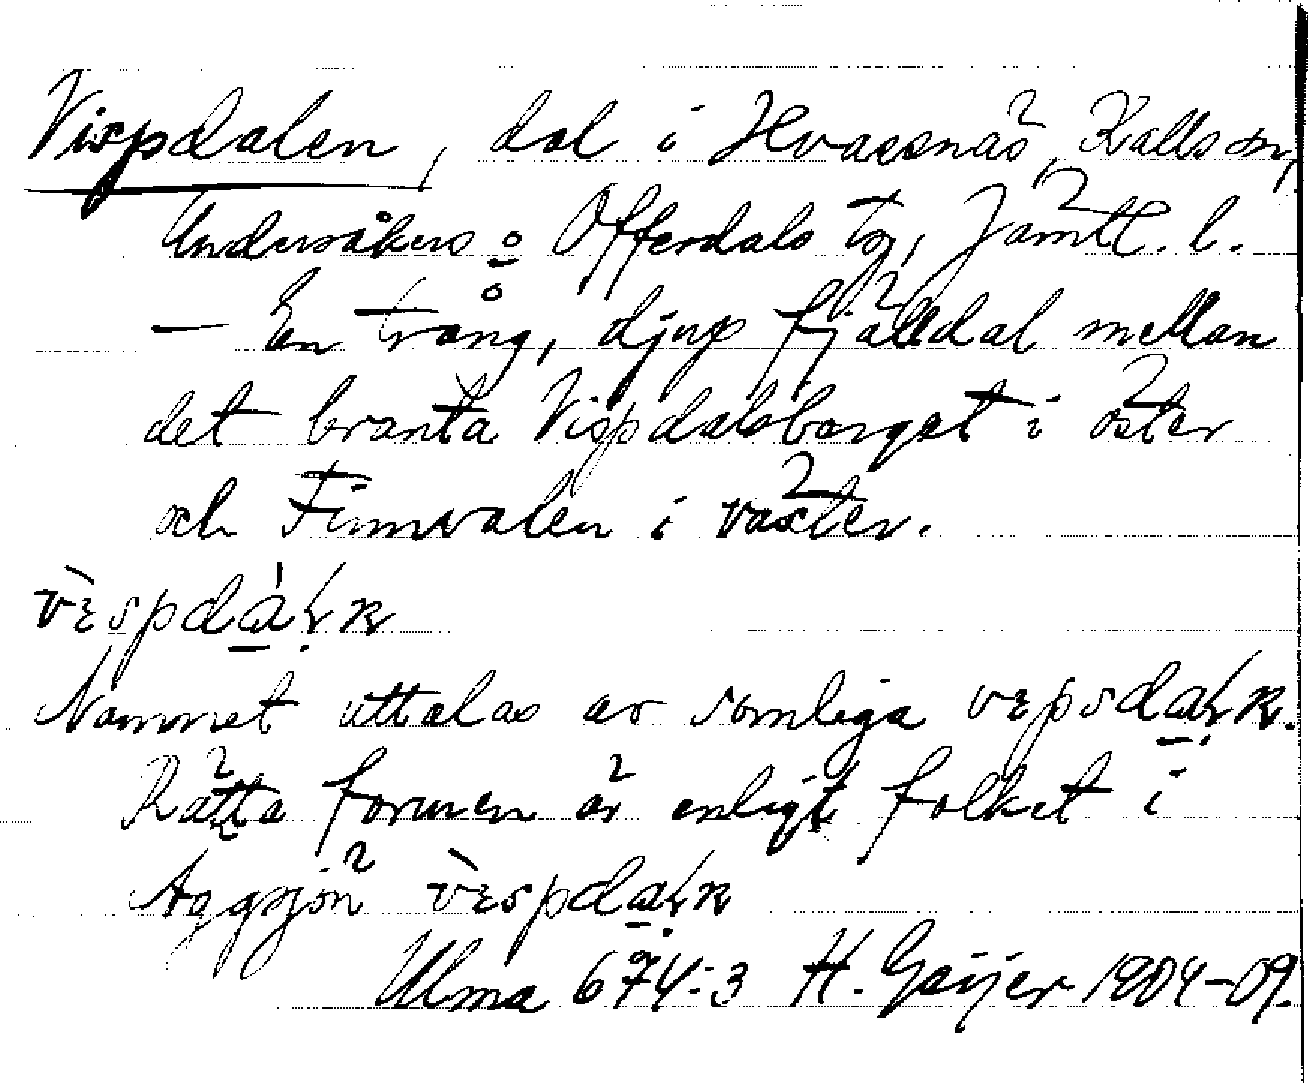 Vispdalen, dal i Hvassnäs, Kalls sn,
Undersåkers o Offerdals tg, Jämtl. l.
— En trång, djup fjälldal mellan
det branta Vispdalsberget i öster
och Finnvalen i väster.
Nammet uttalas av somliga
Rätta formen är enligt folket i
Aggsjön
Ulma 674:3 H. Geijer 1904-09.